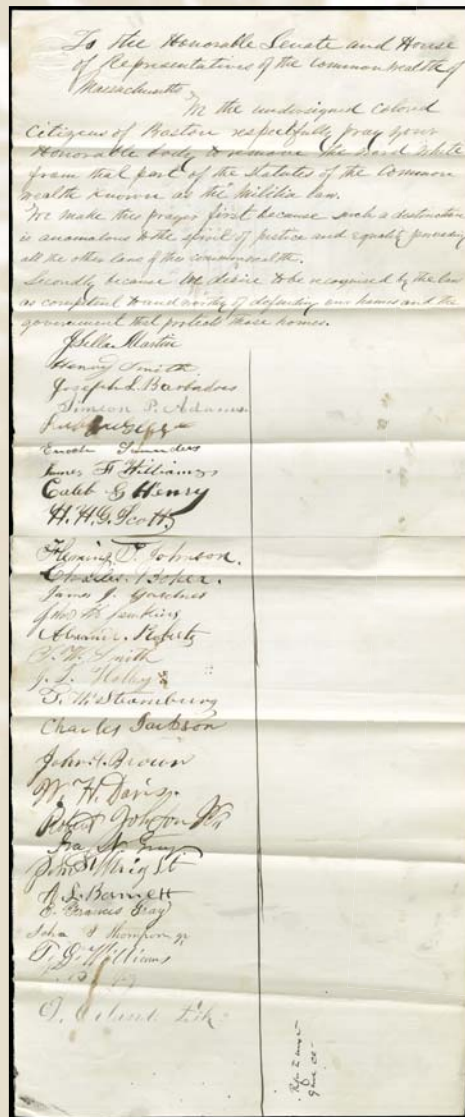 To the Honorable Senate and House
of Representatives of the Commonwealth of
Massachusetts
We the undersigned colored
Citizens of Boston respectfully pray your
Honorable body to remove the word White
from that part of the statutes of the Common
wealth known as the Militia law.
We make this prayer first because such a distinction
is anomalous to the spirit of justice and equality pervading
all the other laws of this commonwealth.
Secondly because we desire to be recognised by the law
as competent to and worthy of defending our homes and the
government that protects those homes.
J Sella Martin
Henry Smith
Joseph L. Barbadoes
Simeon P. Adams
Enoch Saunders
James H Williams
Caleb G Henry
H. H. G. Scott
Fleming T. Johnson.
Charles Baker.
James J. Gardner
John H Jenkins
Roberts
T. W. Smith
J. L.
T. W. Stromburg
Charles Jackson
John A. Brown
W. H. Davis.
Robert Johnson Jr
Ira N. Gray
John S. Wright
A. L. Barnett
E. Francis Gray
John S Thompson jr
T. D. Williams
O.